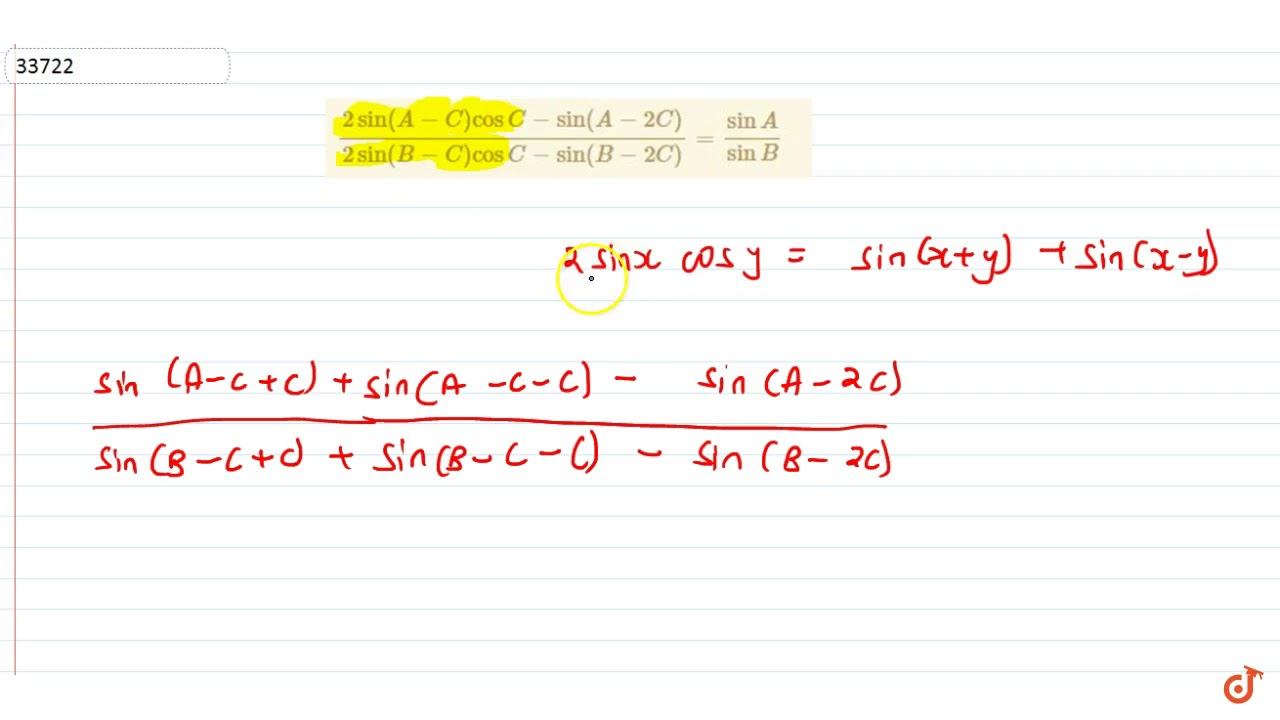 33722
2 sin(A − C)cos C − sin(A − 2C) / 2 sin(B − C)cos C − sin(B − 2C) = sin A / sin B
2 sinx cosy = sin(x+y) + sin(x-y)
sin (A-C+C) + sin(A -C-C) - sin (A-2C)
sin(B-C+C) + sin(B-C-C) - sin (B-2C)